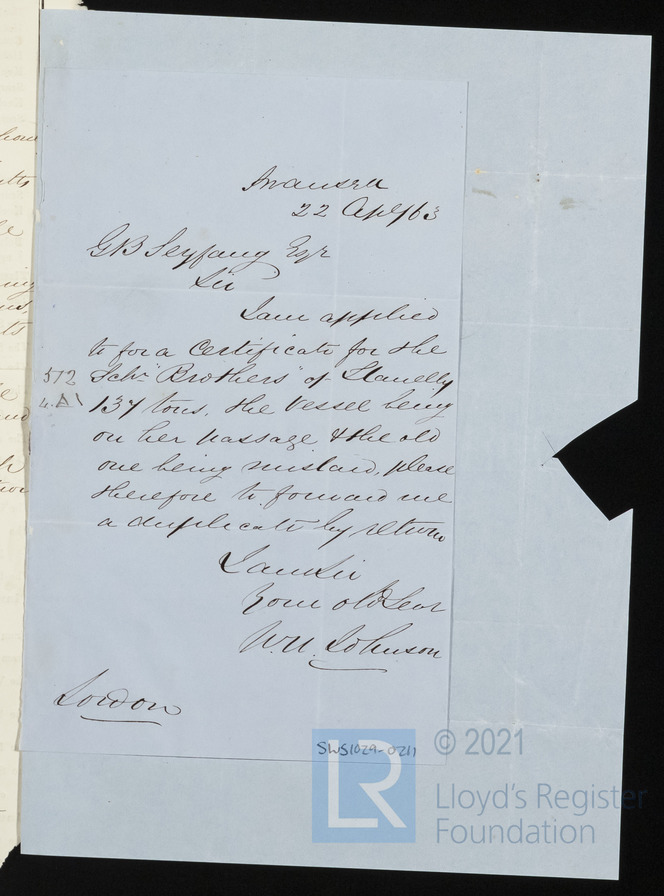 Swansea
22 Apl/63
GB Seyfang Esqr
Sir
I am applied
to for a Certificate for the
Schr "Brothers" of Llanelly
137 tons, the vessel being
on her passage & the old
one being mislaid, please
therefore to forward me
a duplicate by return
I am Sir
Your obd Servt
W.H. Johnson
London
572
4.A1
SWS1029-0211
© 2021
LR
Lloyd's Register
Foundation